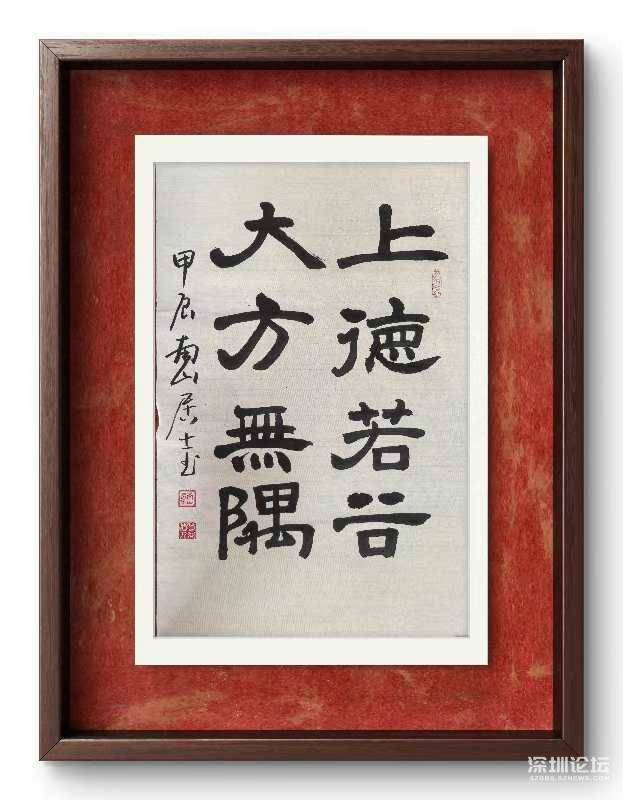 上德若谷
大方無隅
甲辰南山居士书
深圳论坛
SZBBS.SZNEWS.COM